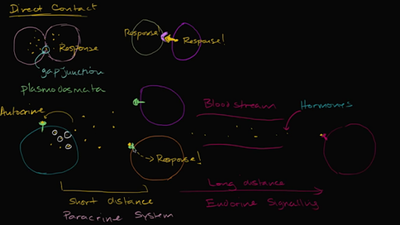 Direct Contact
Response
Response!
Response!
gap junction
plasmodesmata
Autocrine
Bloodstream
Hormones
Response!
short distance
Long distance
Paracrine System
Endocrine Signalling